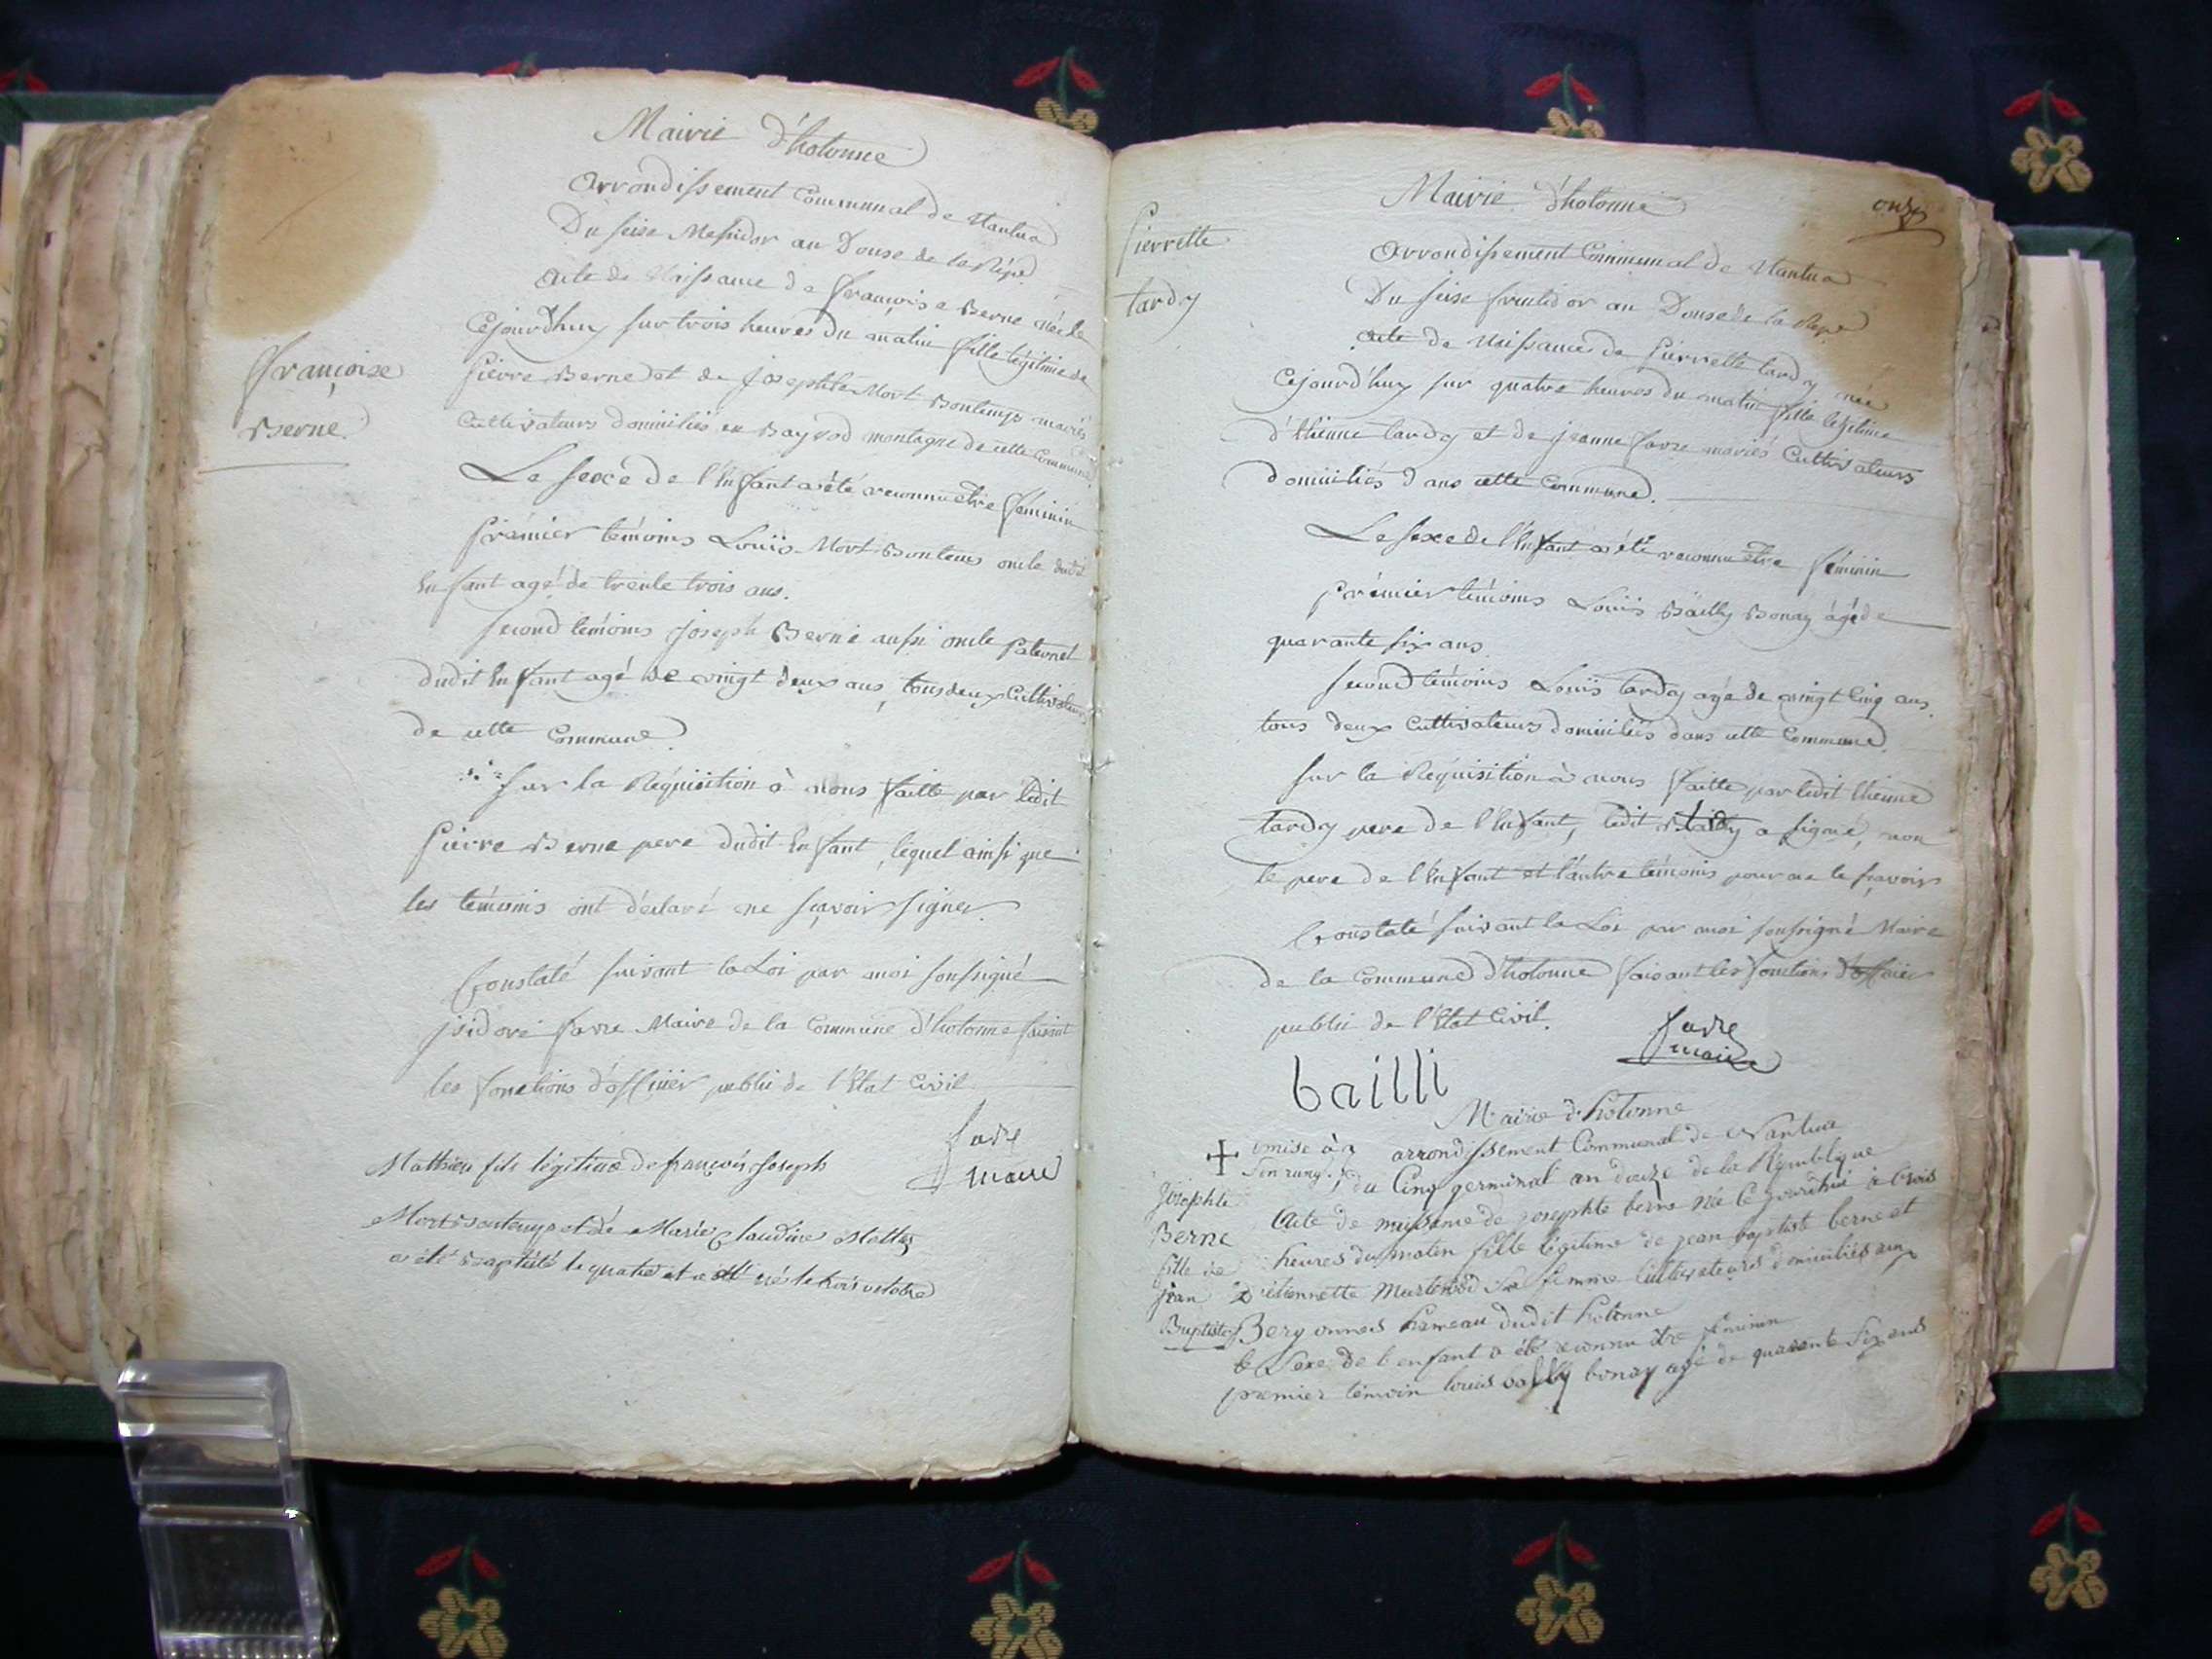 Mairie d'hotonne
Arrondissement Communal de Nantua
Du seise Messidor an Douse de la Répe
Acte de Naissance de françoise Berne née le
Cejourdhuy sur trois heures du matin fille légitime de
françoise
Berne.
Pierre Berne et de Josephte Mort Bontemps mariés
Cultivateurs domiciliés en Bayrod montagne de cette Commune
Le sexe de l'Enfant a été reconnu etre féminin
Prémier témoins Louïs Mort Bontems oncle dudit
Enfant agé de trente trois ans.
second témoins Joseph Berne aussi oncle Paternel
dudit Enfant agé de vingt deux ans, tous deux Cultivateurs
de cette Commune.
sur la Réquisition à nous faitte par ledit
Pierre Berne pere dudit Enfant, lequel ainsi que
les témoins ont déclaré ne sçavoir signer.
Constaté suivant la Loi par moi soussigné
jsidore favre Maire de la Commune d'hotonne faisant
les fonctions d'officier public de l'Etat Civil
favre
maire
Mathieu fils légitime de françois Joseph
Mort Bontemps et de Marie Claudine
a été Baptisté le quatre et a été né le trois octobre
onze
Mairie d'hotonne
Pierrette
tardy
Arrondissement Communal de Nantua
Du seise fructidor an Douse de la Répe
Acte de Naissance de Pierrette tardy née
Cejourdhuy sur quatre heures du matin fille légitime
d'Etienne tardy et de jeanne favre mariés Cultivateurs
domiciliés dans cette Commune.
Le sexe de l'Enfant a été reconnu être féminin
Prémier témoins Louïs Bailly Bonay âgé de
quarante six ans.
second témoins Louïs tardy agé de vingt Cinq ans
tous deux Cultivateurs domiciliés dans cette Commune.
sur la Réquisition à nous faitte par ledit Etienne
tardy pere de l'Enfant, ledit Bailly a signé, non
le pere de l'Enfant et l'autre témoins pour ne le sçavoir
Constaté suivant la Loi par moi soussigné Maire
de la Commune d'hotonne faisant les fonctions d'officier
public de l'Etat Civil.
favre
maire
bailli
Mairie d'hotonne
+ omise à
son rang.
arrondissement Communal de Nantua
du Cinq germinal an douze de la République
Josephte
Berne
fille de
jean
Baptiste
Acte de naissance de josephte berne née Cejourdhui à trois
heures du matin fille légitime de jean baptiste berne et
d'étiennette sa femme Cultivateurs domiciliés aux
Bergonnes hameau dudit hotonne
le Sexe de l'enfant a été reconnu être féminin
premier témoin louis bailly bonay agé de quarante six ans